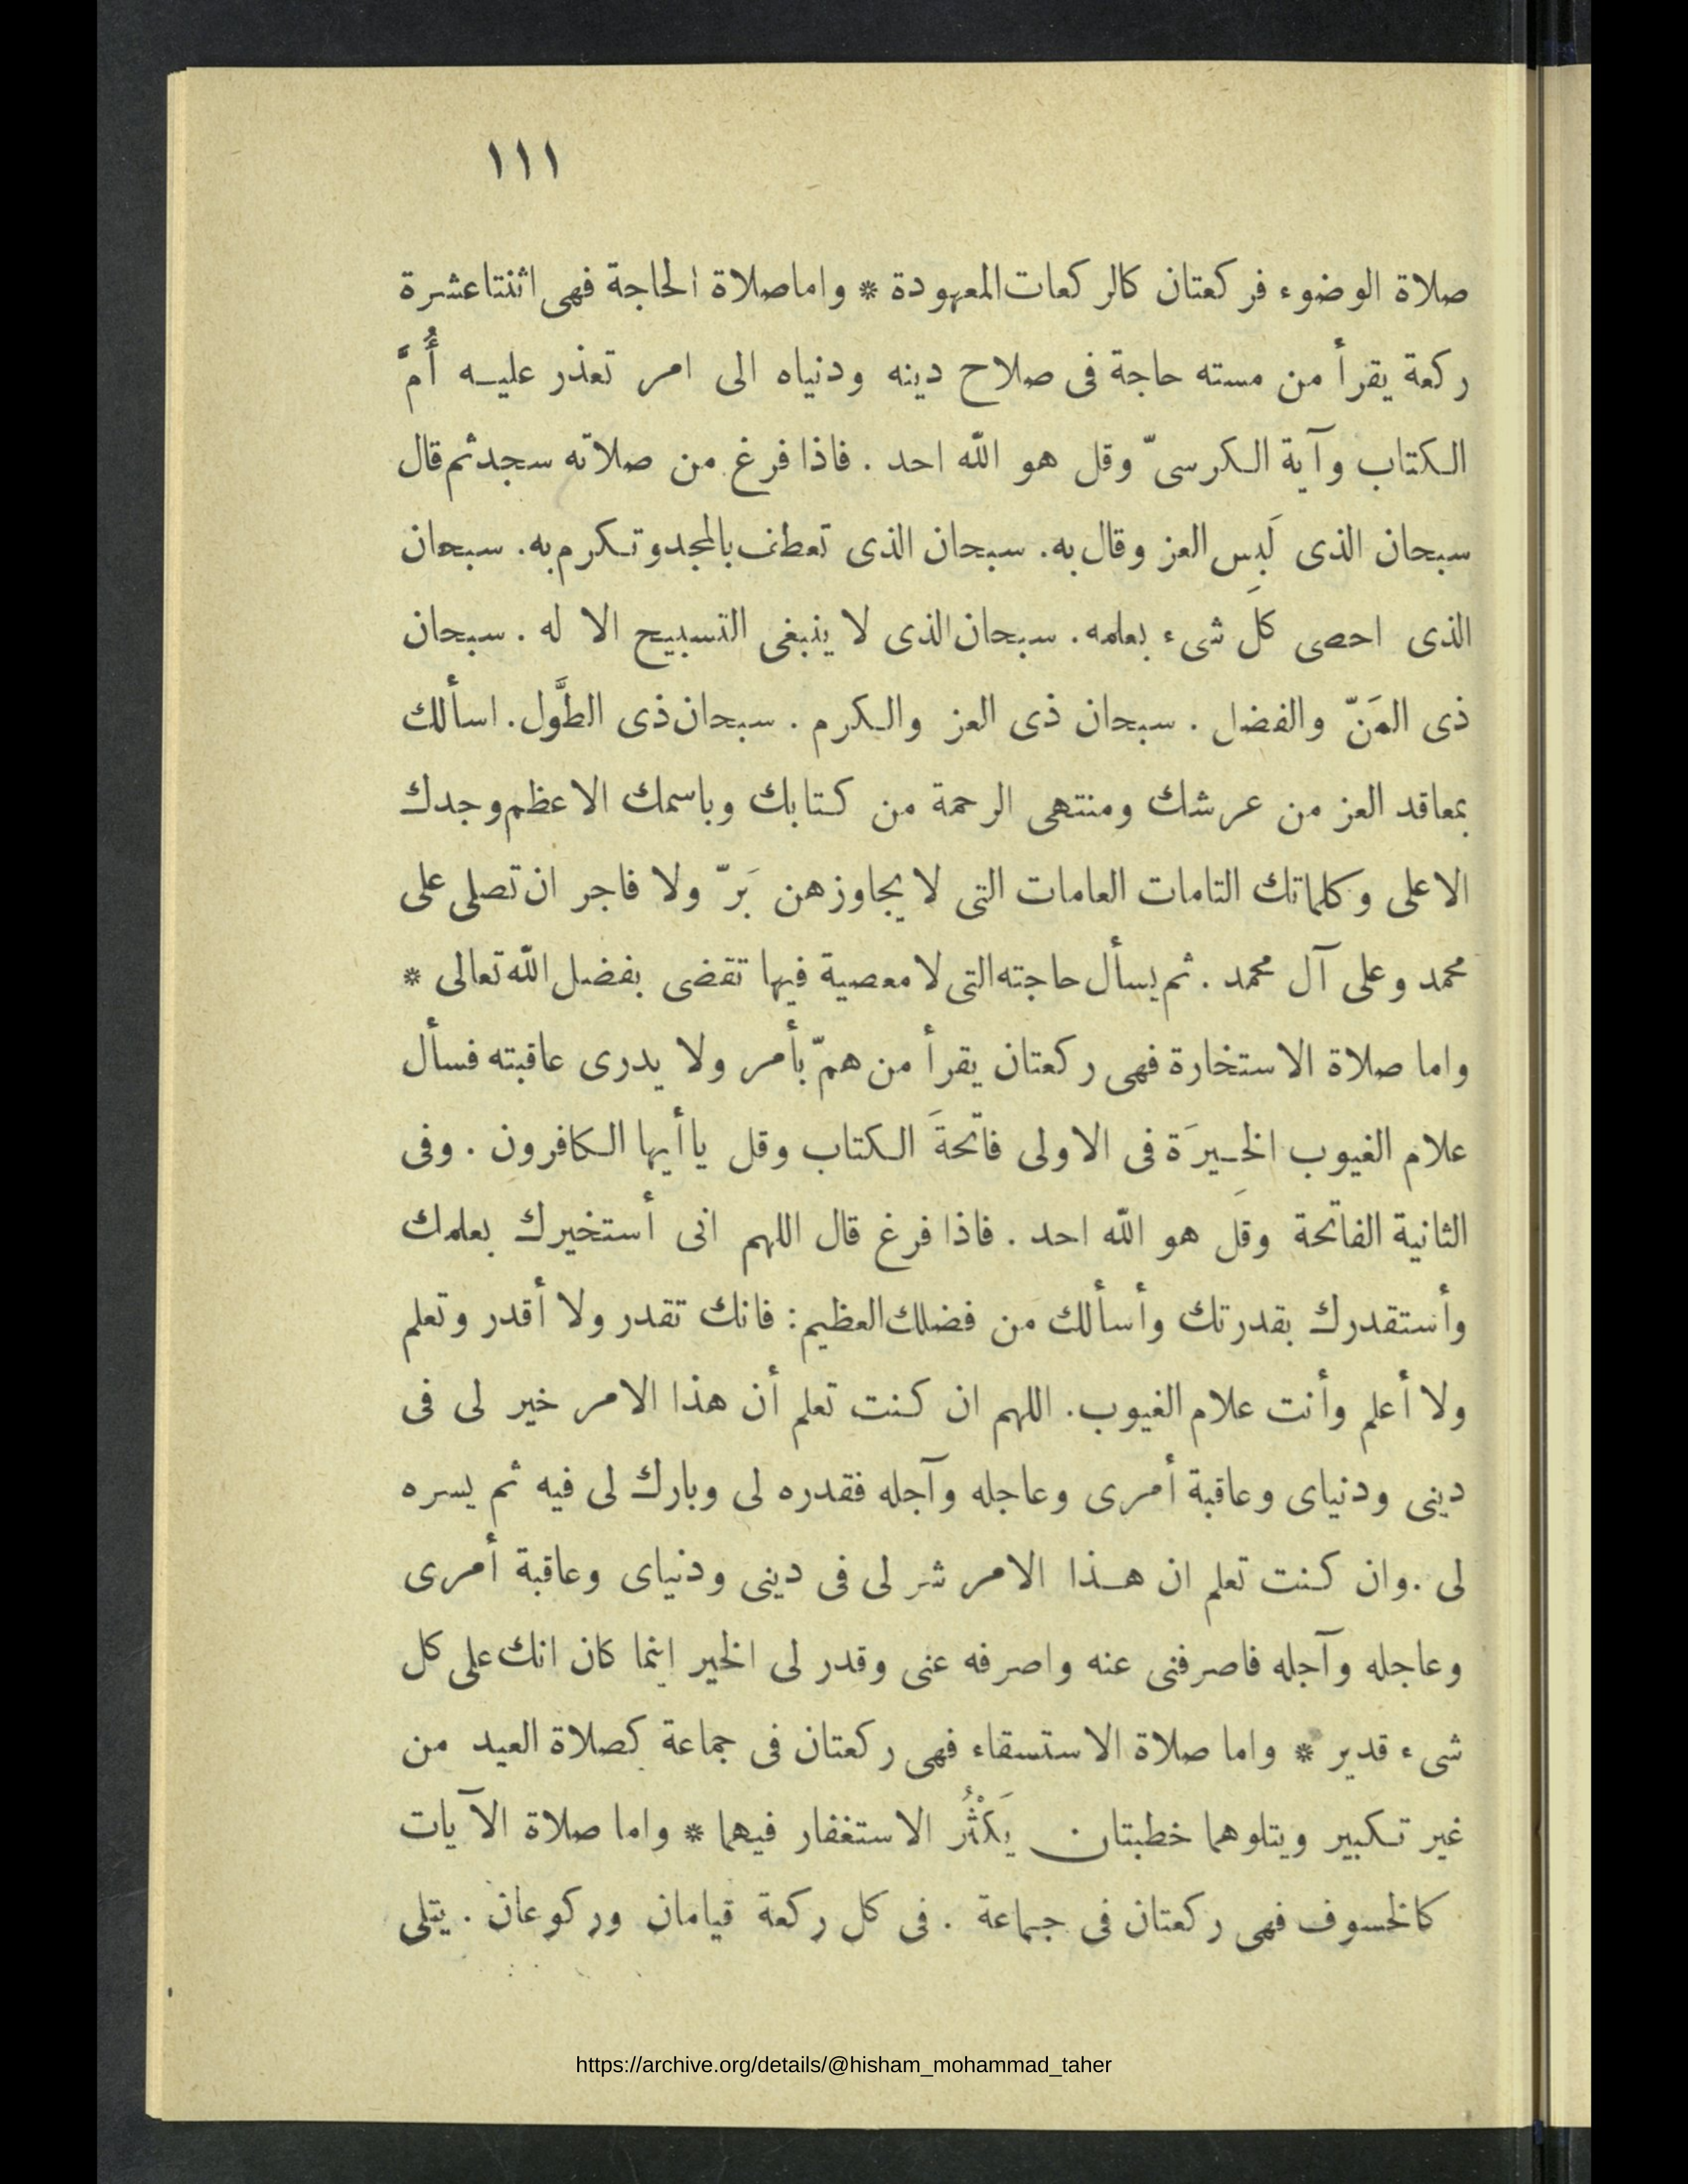 ١١١
صلاة الوضوء فركعتان كالركعات المعهودة * واما صلاة الحاجة فهى اثنتا عشرة
ركعة يقرأ من مسته حاجة فى صلاح دينه ودنياه الى امر تعذر عليه أُمَّ
الكتاب وآية الكرسىّ وقل هو اللّه احد . فاذا فرغ من صلاته سجد ثم قال
سبحان الذى لَبِس العز وقال به. سبحان الذى تعطف بالمجد وتكرم به. سبحان
الذى احصى كلَ شىء بعلمه. سبحان الذى لا ينبغى التسبيح الا له . سبحان
ذى المَنّ والفضل . سبحان ذى العز والكرم . سبحان ذى الطَّول. اسألك
بمعاقد العز من عرشك ومنتهى الرحمة من كتابك وباسمك الاعظم وجدك
الاعلى وكلماتك التامات العامات التى لا يجاوزهن بَرّ ولا فاجر ان تصلى على
محمد وعلى آل محمد . ثم يسأل حاجته التى لا معصية فيها تقضى بفضل اللّه تعالى *
واما صلاة الاستخارة فهى ركعتان يقرأ من همّ بأمر ولا يدرى عاقبته فسأل
علام الغيوب الخِيرَة فى الاولى فاتحةَ الكتاب وقل ياأيها الكافرون . وفى
الثانية الفاتحة وقل هو اللّه احد . فاذا فرغ قال اللهم انى أستخيرك بعلمك
وأستقدرك بقدرتك وأسألك من فضلك العظيم: فانك تقدر ولا أقدر وتعلم
ولا أعلم وأنت علام الغيوب. اللهم ان كنت تعلم أن هذا الامر خير لى فى
دينى ودنياى وعاقبة أمرى وعاجله وآجله فقدره لى وبارك لى فيه ثم يسره
لى .وان كنت تعلم ان هذا الامر شر لى فى دينى ودنياى وعاقبة أمرى
وعاجله وآجله فاصرفنى عنه واصرفه عنى وقدر لى الخير اينما كان انك على كل
شىء قدير * واما صلاة الاستسقاء فهى ركعتان فى جماعة كصلاة العيد من
غير تكبير ويتلوهما خطبتان يَكْثُر الاستغفار فيهما * واما صلاة الآيات
كالخسوف فهى ركعتان فى جماعة . فى كل ركعة قيامان وركوعان . يتلى
https://archive.org/details/@hisham_mohammad_taher